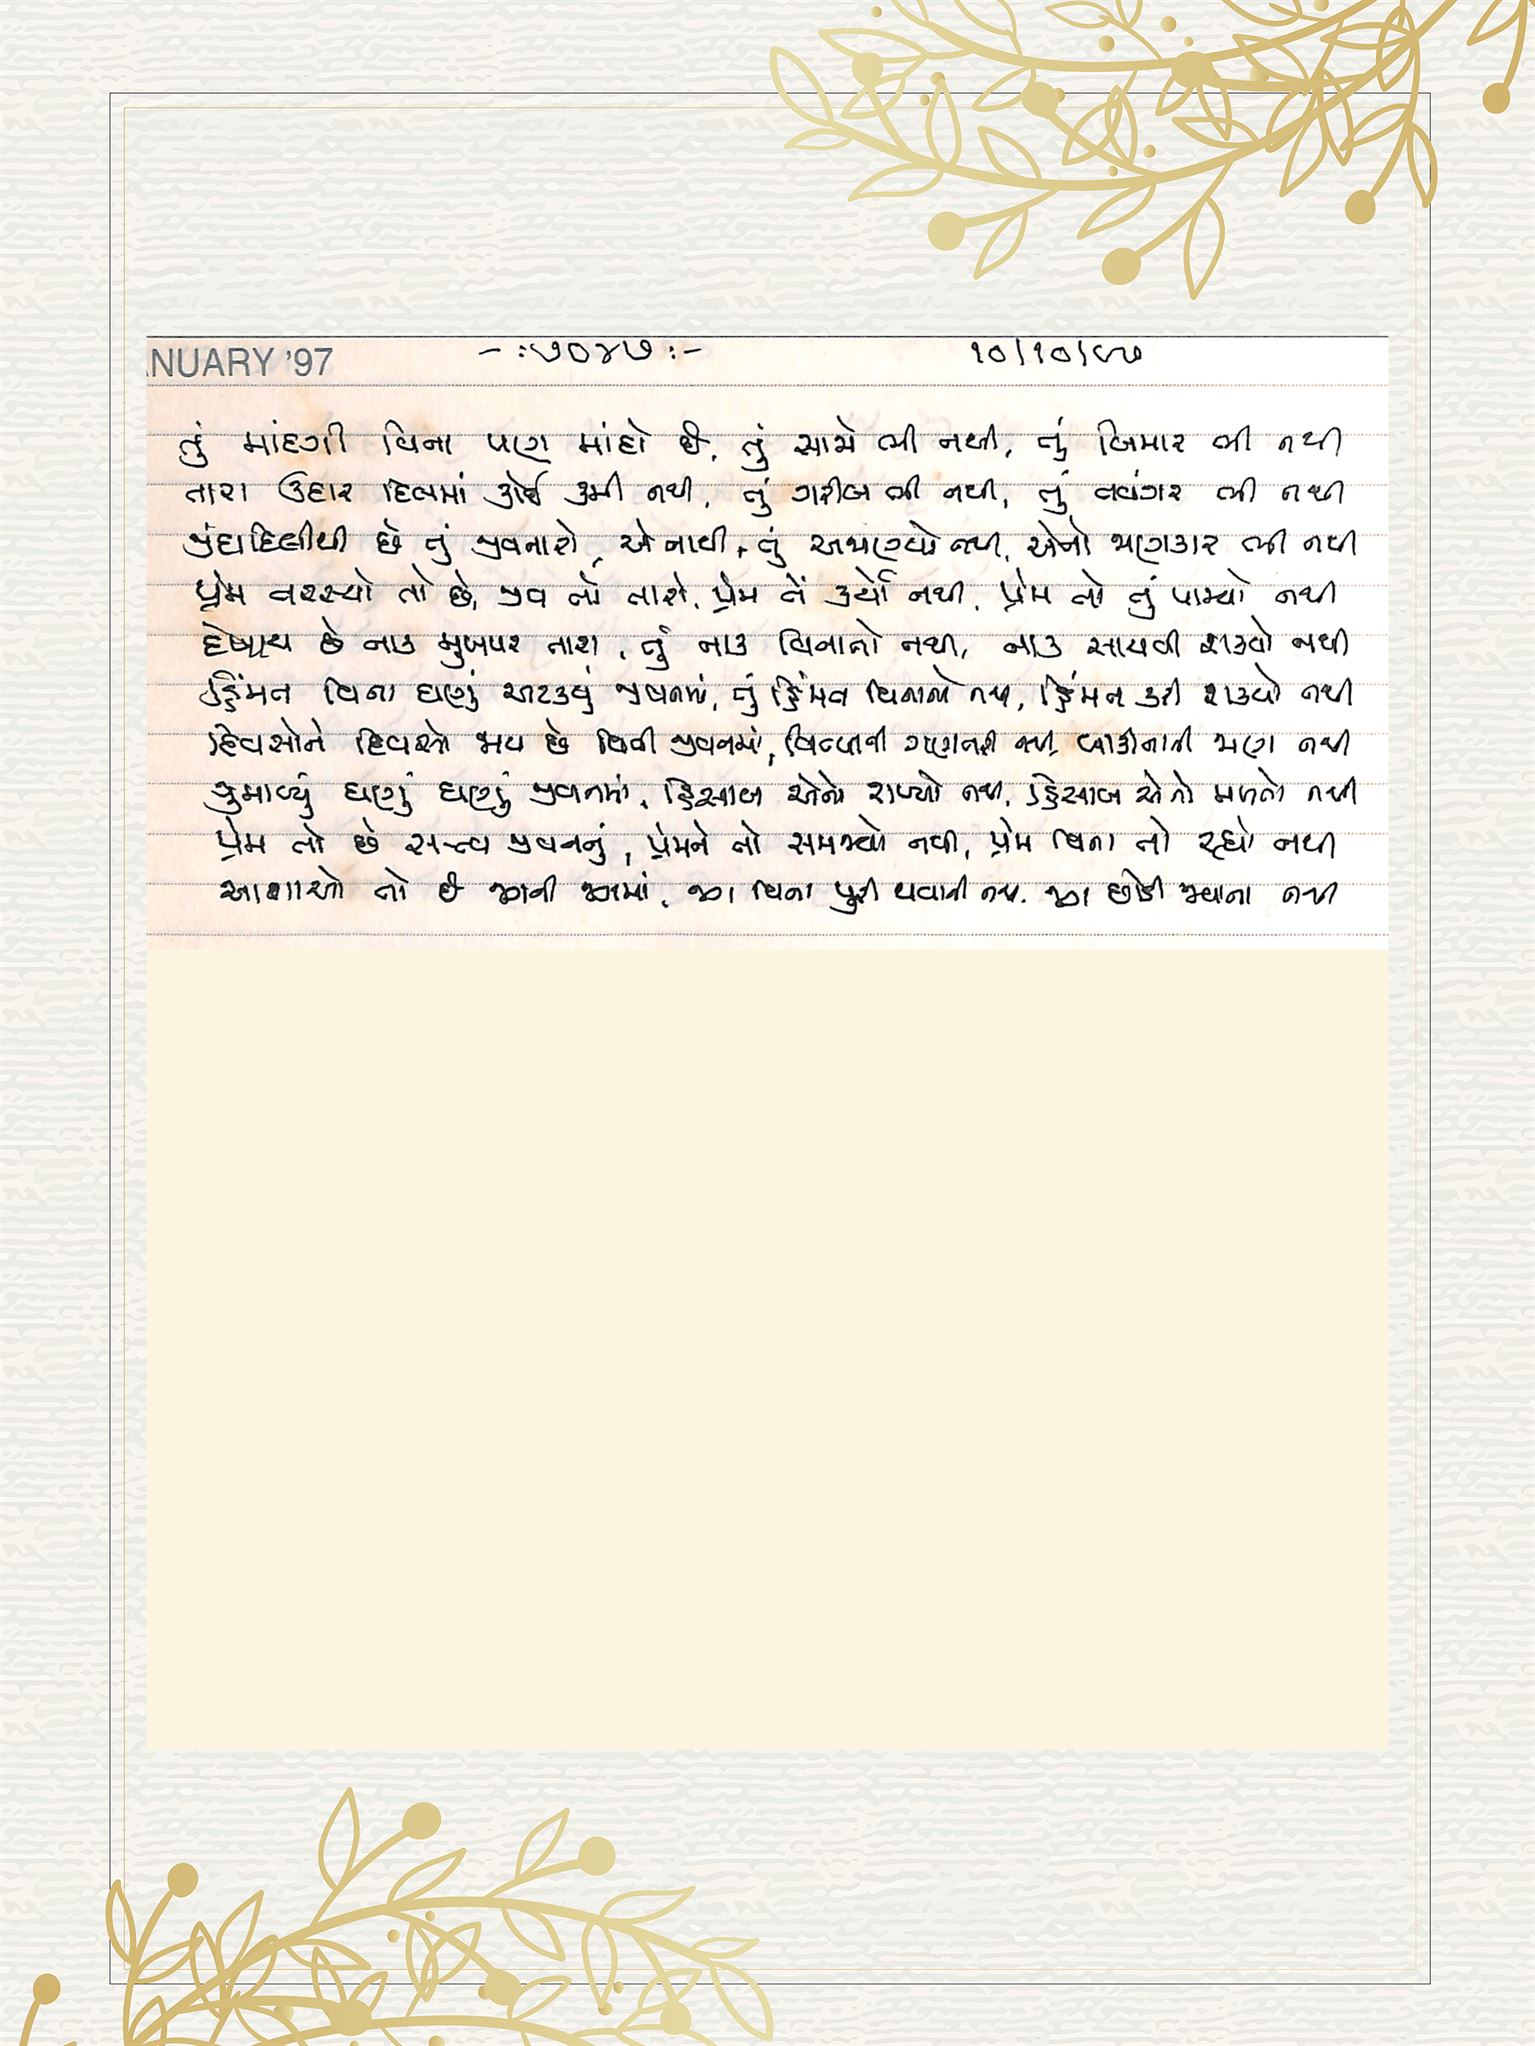 NUARY '97 -:૭૦૪૭:- ૧૦/૧૦/૯૭
તું માંદગી વિના પણ માંદો છે, તું સાજો ભી નથી, તું બિમાર ભી નથી
તારા ઉદાર દિલમાં કોઈ કમી નથી, તું ગરીબ ભી નથી, તું તવંગર ભી નથી
જીંદાદિલીથી છે તું જીવનારો, એ નાથી, તું અજાણ્યો નથી, એનો જાણકાર ભી નથી
પ્રેમ તરસ્યો તો છે, જીવ તો તારો, પ્રેમ તેં કર્યો નથી, પ્રેમ તો તું પામ્યો નથી
દેખાય છે નાક મુખપર તારા, તું નાક વિનાનો નથી, નાક સાચવી શક્યો નથી
હિંમત વિના ઘણું અટક્યું જીવનમાં, તું હિંમત વિનાનો નથી, હિંમત કરી શક્યો નથી
દિવસોને દિવસો જાય છે વિતી જીવનમાં, વિત્યાની ગણતરી નથી, બાકીનાની જાણ નથી
ગુમાવ્યું ઘણું ઘણું જીવનમાં, હિસાબ એનો રાખ્યો નથી, હિસાબ એનો મળતો નથી
પ્રેમ તો છે સત્ત્વ જીવનનું, પ્રેમને તો સમજ્યો નથી, પ્રેમ વિના તો રહ્યો નથી
આશાઓ તો છે જગની જગમાં, જગ વિના પુરી થવાની નથી, જગ છોડી જવાના નથી